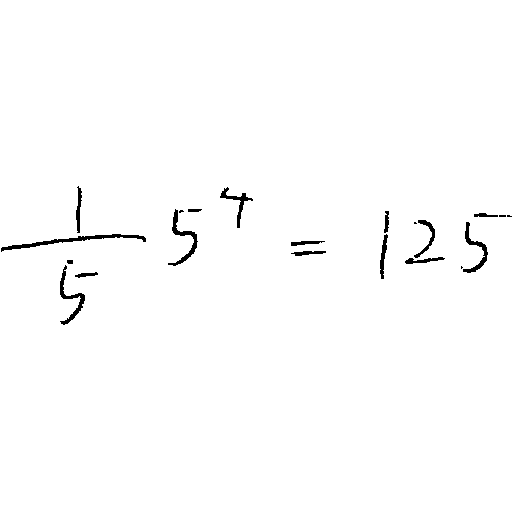 \frac{1}{5} 5^4 = 125